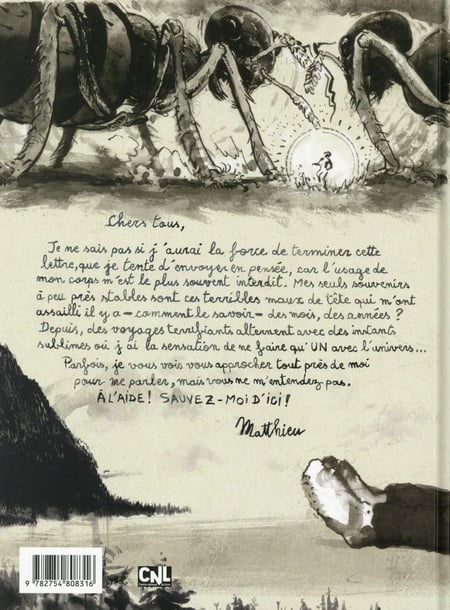 Chers tous,
Je ne sais pas si j'aurai la force de terminer cette
lettre, que je tente d'envoyer en pensée, car l'usage de
mon corps m'est le plus souvent interdit. Mes seuls souvenirs
à peu près stables sont ces terribles maux de tête qui m'ont
assailli il y a – comment le savoir – des mois, des années ?
Depuis, des voyages terrifiants alternent avec des instants
sublimes où j'ai la sensation de ne faire qu'UN avec l'univers...
Parfois, je vous vois vous approcher tout près de moi
pour me parler, mais vous ne m'entendez pas.
À L'AIDE ! SAUVEZ-MOI D'ICI !
Matthieu
9 782754 808316
CNL